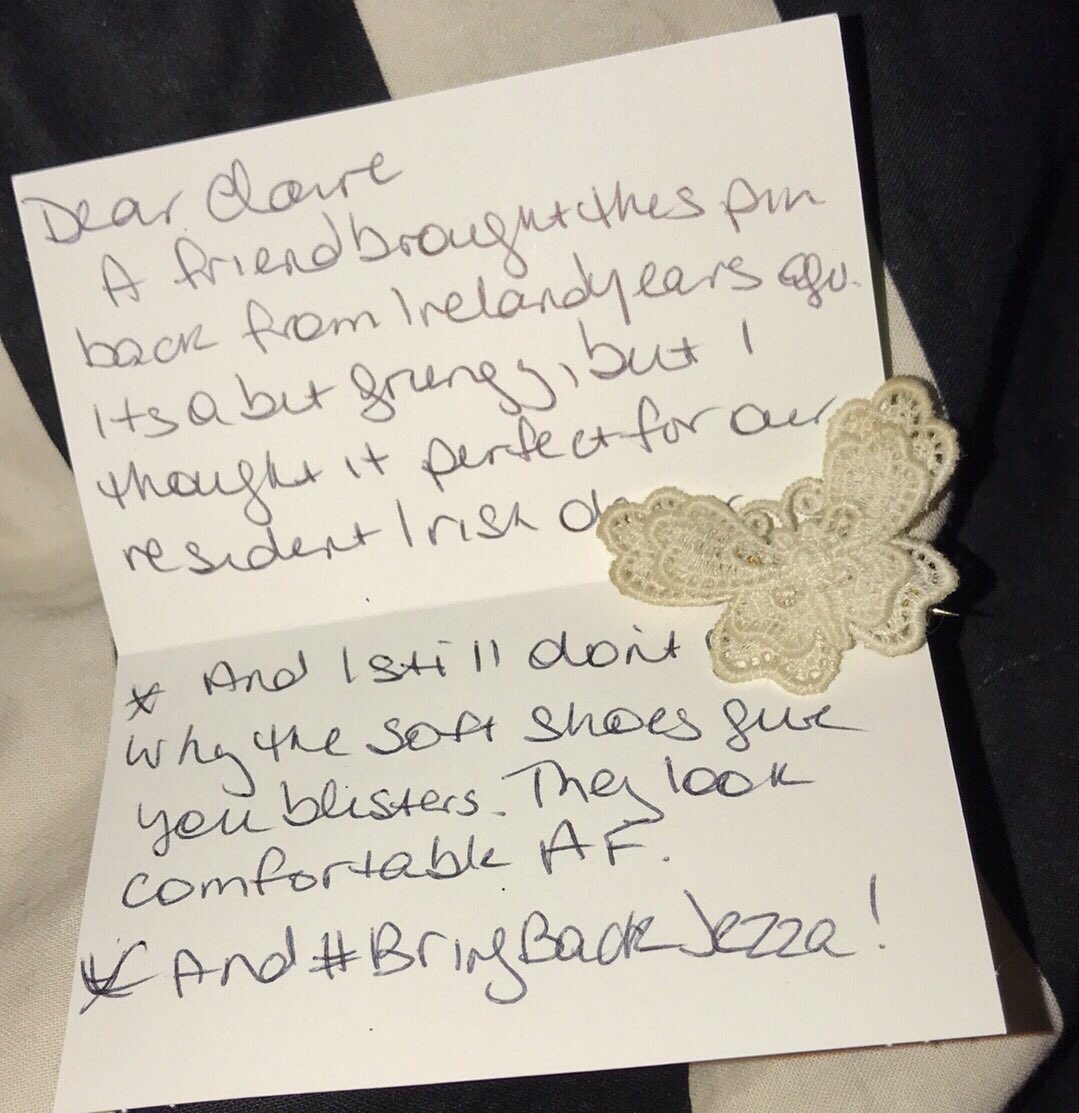 Dear Claire
A friend brought this pin
back from Ireland years ago.
Its a bit grungy, but I
thought it perfect for our
resident Irish
* And I still don't
why the soft shoes give
you blisters. They look
comfortable AF.
* And #BringBackJezza!